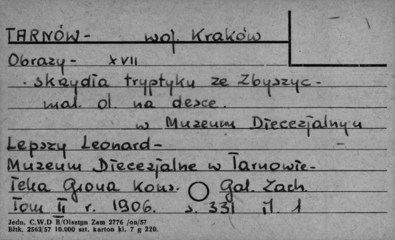 TARNÓW - woj. Kraków
Obrazy - XVII
- skrzydła tryptyku ze Zbyszyc -
mal. ol. na desce.
w Muzeum Diecezjalnym
Lepszy Leonard -
Muzeum Diecezjalne w Tarnowie -
Teka Grona Kons. Gal. Zach.
Tom II r. 1906. s. 331 il. 1
Jedn. C.W.D B/Olsztyn Zam 2776 /on/57
Blkt. 2563/57 10.000 szt. karton kl. 7 g 220.